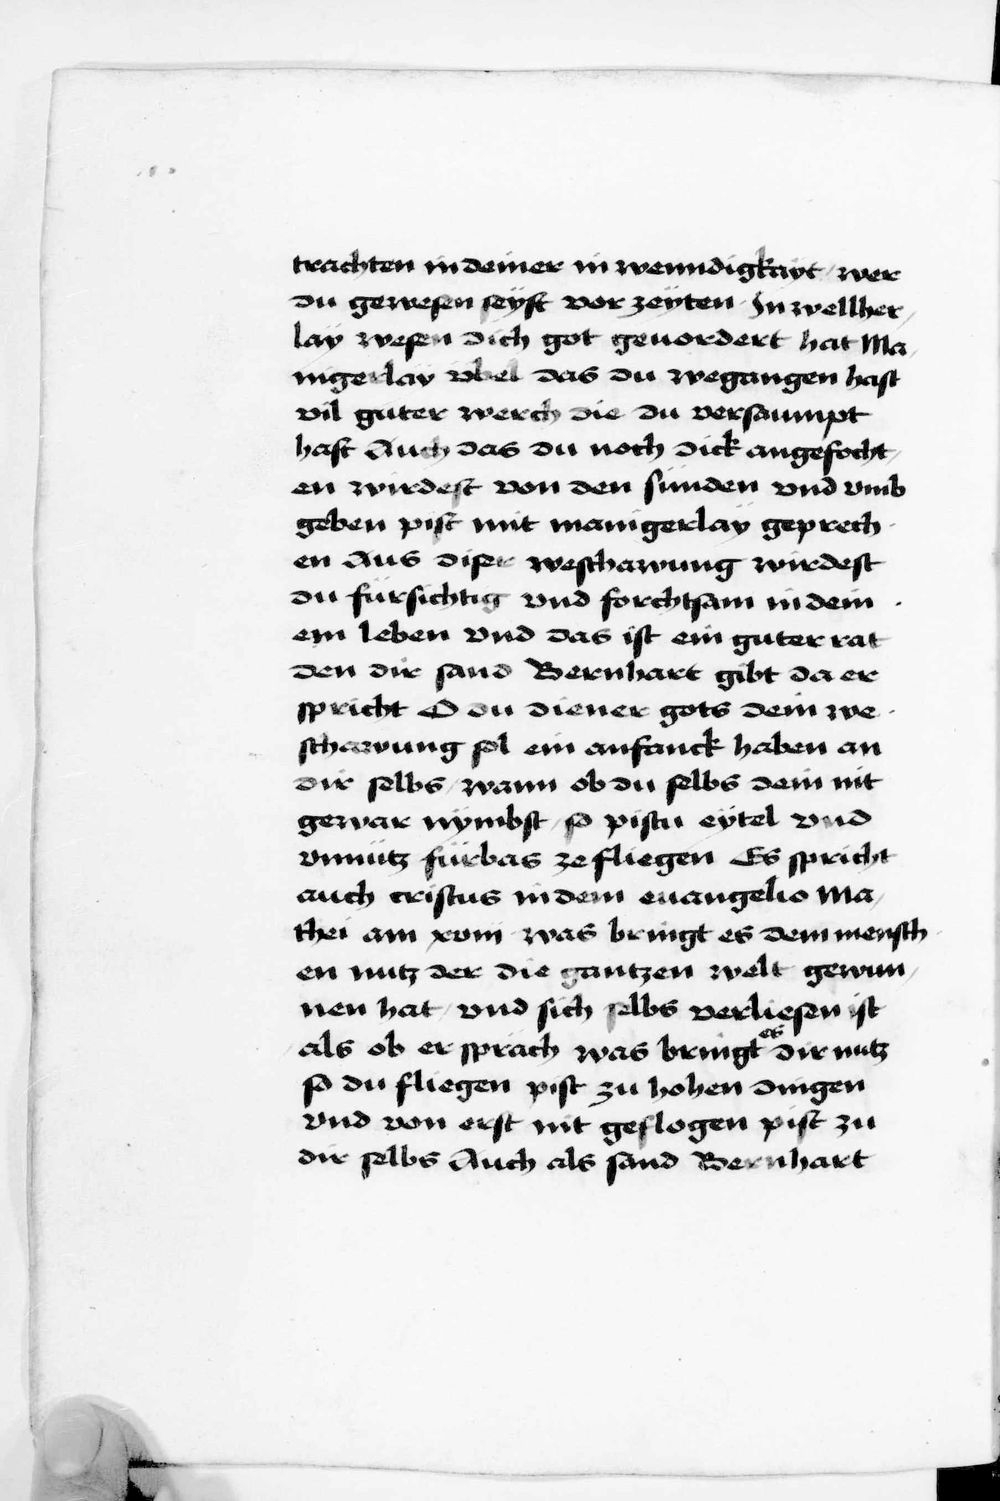 trachten in deiner in wenndigkäyt / wer
du gewesen seÿst vor zeÿten · In wellher /
laÿ wesen dich got geuordert hat Ma /
nigerlaÿ vbel das du wegangen hast
vil guter werch die du versaumpt
hast Auch das du noch dick angefocht /
en wirdest von den sünden vnd vmb
geben pist mit manigerlaÿ geprech ·
en Aus diser weschawung wirdest
du fürsichtig vnd forchtsam in dein ·
em leben vnd das ist ein guter rat
den dir sand Bernhart gibt da er
spricht O du diener gots dein we ·
schawung sol ein anfanck haben an
dir selbs / wann ob du selbs dein nit
gewar nÿmbst / so pistu eÿtel vnd
vnnütz fürbas ze fliegen Es spricht
auch cristus in dem euangelio Ma /
thei am xviij was bringt es dem mensch ·
en nutz der die gantzen welt gewun /
nen hat / vnd sich selbs verliesen ist
als ob er spräch was bringt es dir nutz
so du fliegen pist zu hohen dingen
vnd von erst nit geflogen pist zu
dir selbs Auch als sand Bernhart